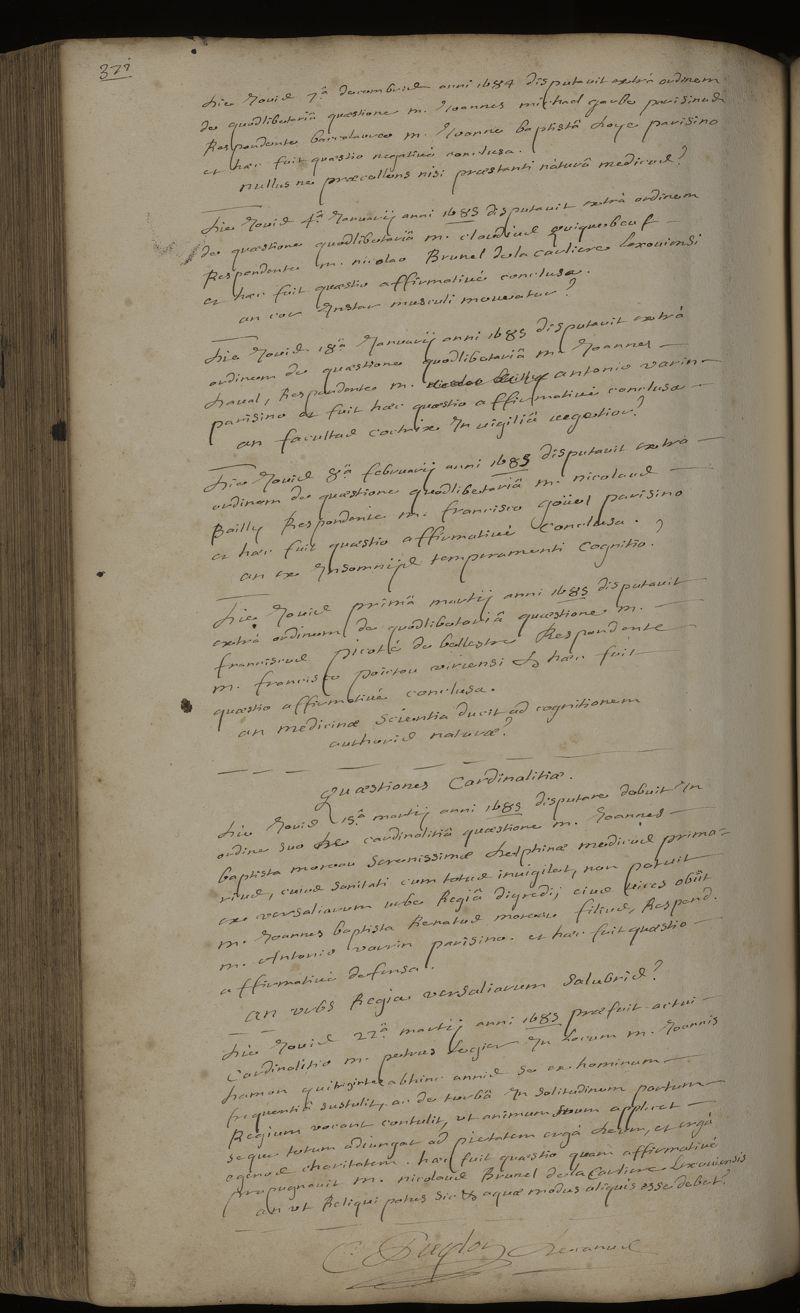 371
die Jovis 7.ª decembris anni 1684 disputavit extrà ordinem
de quodlibetariâ quæstione m. Joannes michael garbe parisinus
Respondente baccalaureo m. Joanne baptistâ doye parisino
et hæc fuit quæstio negativè conclusa.
nullus ne præcellens nisi præstanti naturâ medicus?
die Jovis 4.ª Januarij anni 1685 disputavit extrà ordinem
de quæstione quodlibetariâ m. claudius quiquebeuf
Respondente m. nicolao Brunel de la carliere Lexoviensi
et hæc fuit quæstio affirmativè conclusa.
an cor Instar musculi moveatur?
die Jovis 18ª Januarij anni 1685 disputavit extrà
ordinem de quæstione quodlibetariâ m. Joannes
daval, Respondente m. antonio varin
parisino et fuit hæc quæstio affirmativè conclusa
an facultas coctrix In vigiliâ vegetior?
die Jovis 8ª februarij anni 1685 disputavit extra
ordinem de quæstione quodlibetariâ m. nicolaus
Bailly Respondente m. francisco goüel parisino
et hæc fuit quæstio affirmativè conclusa.
an ex Insomnijs temperamenti cognitio?
die Jovis primâ martij anni 1685 disputavit
extrà ordinem de quodlibetariâ quæstione m.
franciscus picoté de bellestre Respondente
m. francisco poictou viriensi et hæc fuit
quæstio affirmativè conclusa.
an medicinæ scientia ducit ad cognitionem
authoris naturæ?
Quæstiones Cardinalitiæ.
die Jovis 15ª martij anni 1685 disputare debuit In
ordine suo de cardinalitiâ quæstione m. Joannes
baptista moreau serenissimæ delphinæ medicus prima=
rius, cuius sanitati cum totus invigilet, non potuit
ex versaliarum urbe Regiâ digredi; eius vices obiit
m. Joannes baptista Renatus moreau filius, Respond.
m. Antonio varin parisino. et hæc fuit quæstio
affirmativè defensa.
an urbs Regia versaliarum salubris?
die Jovis 22ª martij anni 1685 præfuit actui
Cardinalitio m. petrus legier In locum m. Joannis
hamon qui triginta abhinc annis se ex hominum
frequentiâ sustulit, ac de turbâ In solitudinem portum
Regium vocant contulit, ut animum suum applicet
seque totum adiungat ad pietatem ergà deum, et ergà
egenos charitatem. hæc fuit quæstio quam affirmativè
propugnavit m. nicolaus Brunel de la Carliere Lexoviensis
an ut Reliqui potus sic et aquæ modus aliquis esse debet?
C. Puylon decanus